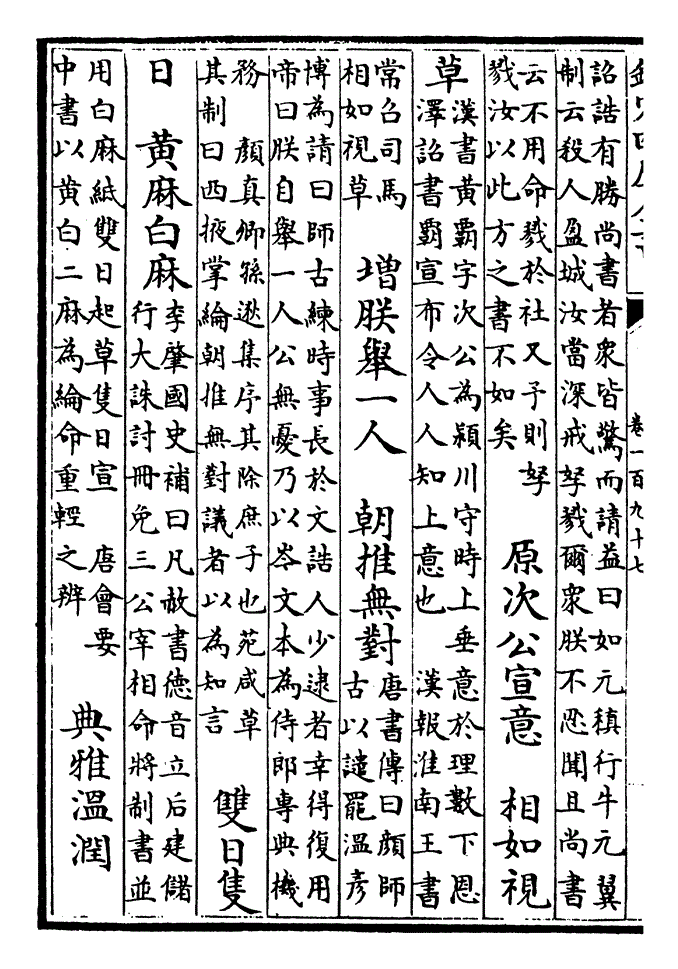 卷一百九十七
詔誥有勝尚書者衆皆驚而請益曰如元稹行牛元翼
制云殺人盈城汝當深戒孥戮爾衆朕不忍聞且尚書
云不用命戮於社又予則孥
戮汝以此方之書不如矣
原次公宣意　相如視
草
漢書黃霸字次公為潁川守時上垂意於理數下恩
澤詔書霸宣布令人人知上意也　漢報淮南王書
常召司馬
相如視草
增朕舉一人　朝推無對
唐書傳曰顏師
古以譴罷溫彥
博為請曰師古練時事長於文誥人少逮者幸得復用
帝曰朕自舉一人公無憂乃以岑文本為侍郎專典機
務　顏真卿孫逖集序其除庶子也苑咸草
其制曰西掖掌綸朝推無對議者以為知言
雙日隻
日　黃麻白麻
李肇國史補曰凡赦書德音立后建儲
行大誅討冊免三公宰相命將制書並
用白麻紙雙日起草隻日宣　唐會要
中書以黃白二麻為綸命重輕之辨
典雅溫潤